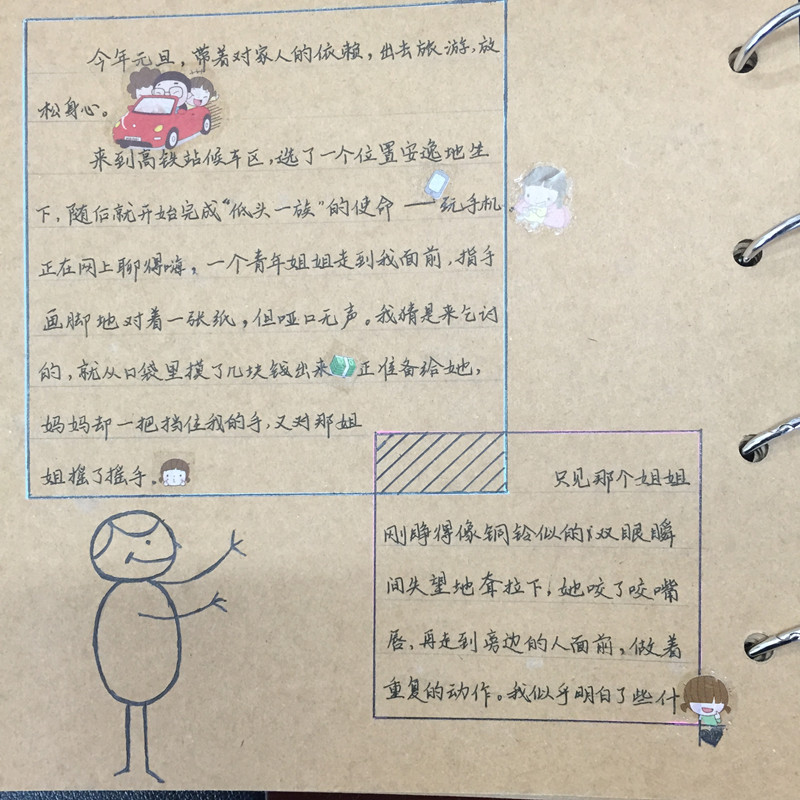 今年元旦，带着对家人的依赖，出去旅游，放
松身心。
来到高铁站候车区，选了一个位置安逸地坐
下，随后就开始完成“低头一族”的使命——玩手机。
正在网上聊得嗨，一个青年姐姐走到我面前，指手
画脚地对着一张纸，但哑口无声。我猜是来乞讨
的，就从口袋里摸了几块钱出来正准备给她，
妈妈却一把挡住我的手，又对那姐
姐摇了摇手。
只见那个姐姐
刚睁得像铜铃似的双眼瞬
间失望地耷拉下，她咬了咬嘴
唇，再走到旁边的人面前，做着
重复的动作。我似乎明白了些什